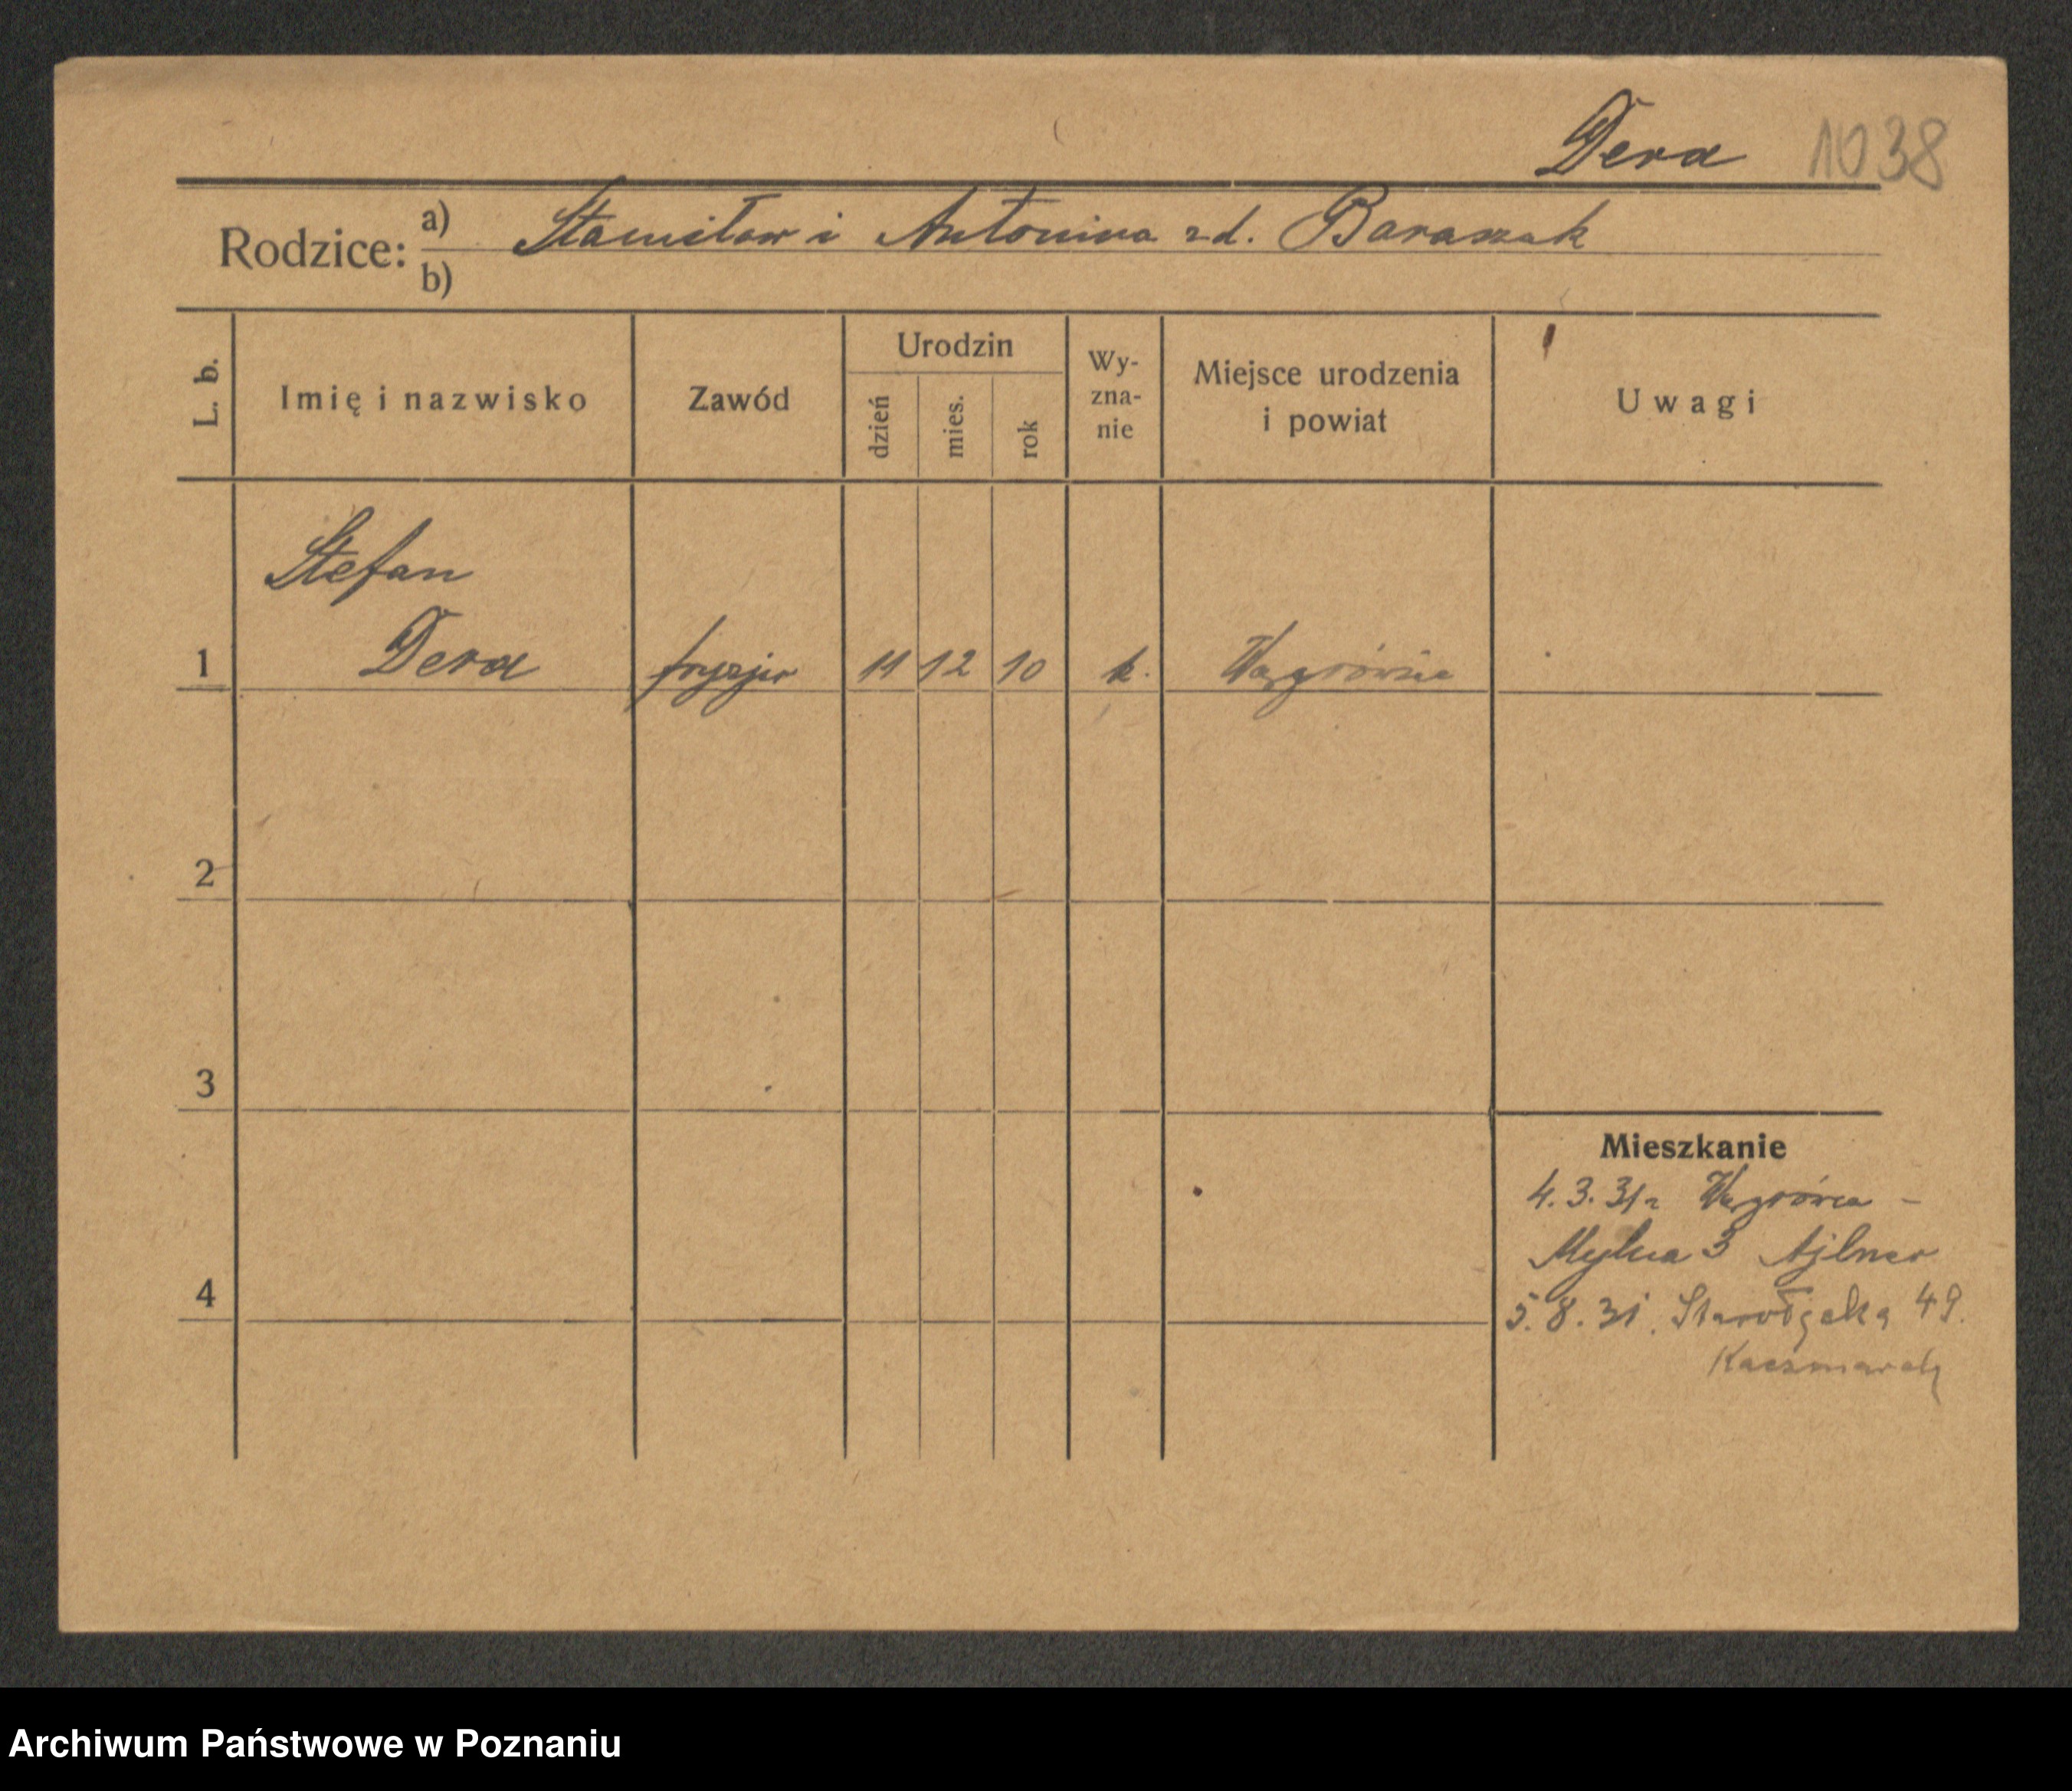 Dera 1038
Rodzice: a) Stanisław i Antonina zd. Baraszak
b)
L. b. Imię i nazwisko Zawód Urodzin dzień mies. rok Wy-zna-nie Miejsce urodzenia i powiat Uwagi
Stefan
1 Dera fryzjer 11 12 10 k. Wągrówiec
2
3
Mieszkanie
4. 3. 31 z Wągrówca -
Mylna 3 Ajlner
4
5. 8. 31. Starołęcka 49.
Kaczmarek
Archiwum Państwowe w Poznaniu